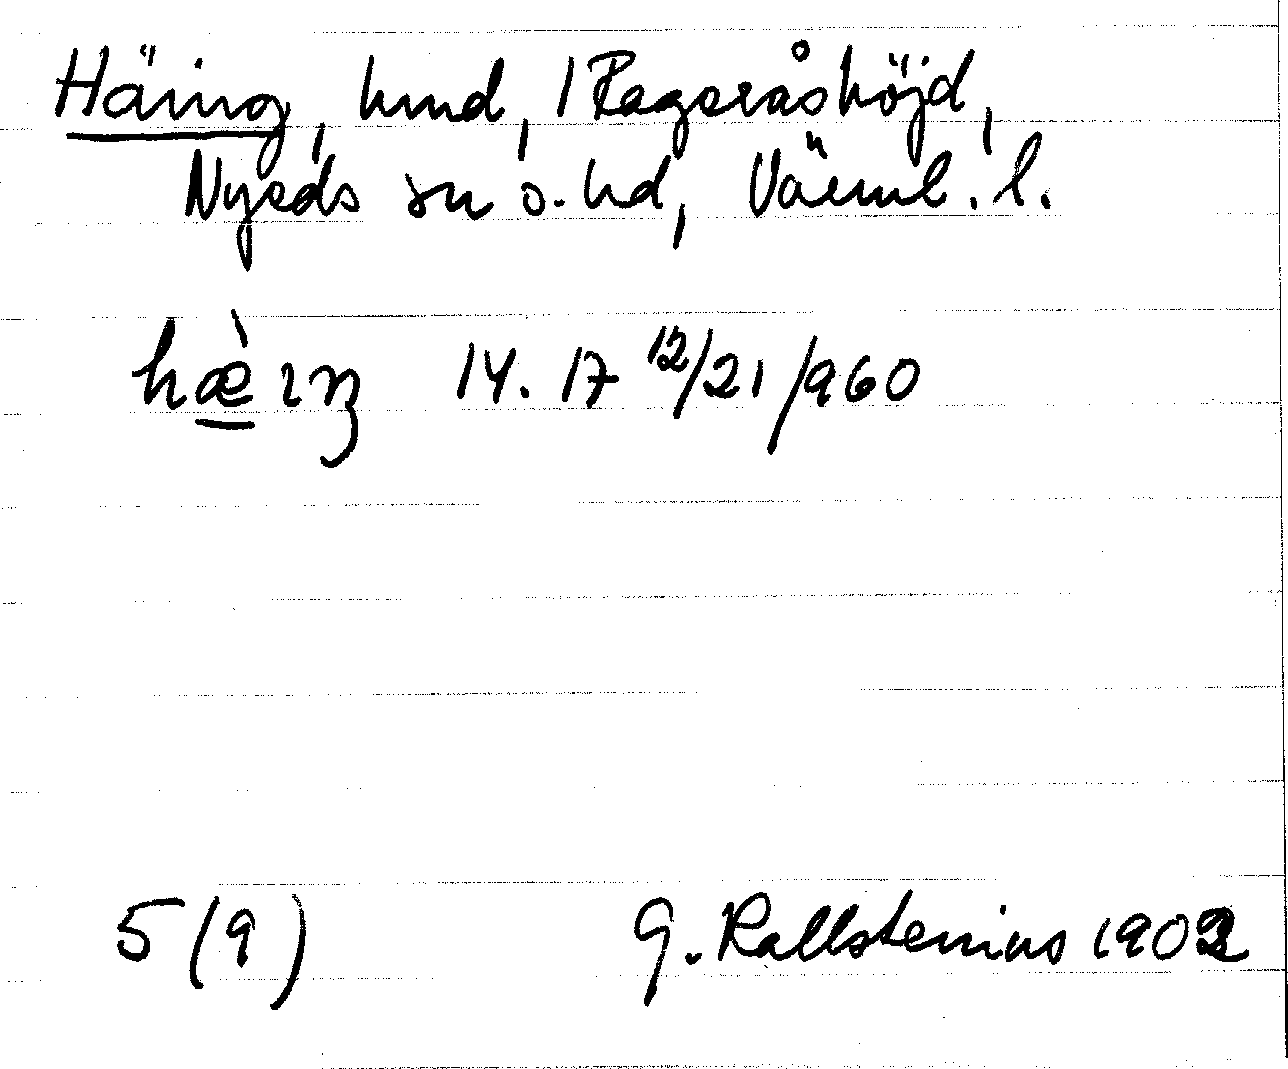 Häring, hmd, 1 Ragsråshöjd,
Nyeds sn o. hd, Värml. l.
hæ̀rıŋ 14. 17 12/21/960
5 (9) G. Kallstenius 1902